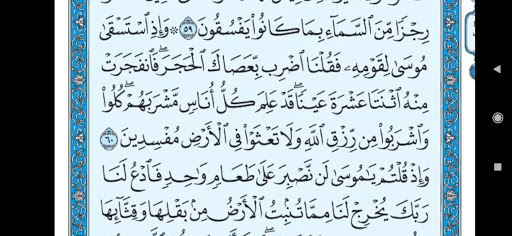 رِجْزًا مِّنَ ٱلسَّمَآءِ بِمَا كَانُوا۟ يَفْسُقُونَ ٥٩ ۞ وَإِذِ ٱسْتَسْقَىٰ
مُوسَىٰ لِقَوْمِهِۦ فَقُلْنَا ٱضْرِب بِّعَصَاكَ ٱلْحَجَرَ ۖ فَٱنفَجَرَتْ
مِنْهُ ٱثْنَتَا عَشْرَةَ عَيْنًا ۖ قَدْ عَلِمَ كُلُّ أُنَاسٍ مَّشْرَبَهُمْ ۖ كُلُوا۟
وَٱشْرَبُوا۟ مِن رِّزْقِ ٱللَّهِ وَلَا تَعْثَوْا۟ فِى ٱلْأَرْضِ مُفْسِدِينَ ٦٠
وَإِذْ قُلْتُمْ يَٰمُوسَىٰ لَن نَّصْبِرَ عَلَىٰ طَعَامٍ وَٰحِدٍ فَٱدْعُ لَنَا
رَبَّكَ يُخْرِجْ لَنَا مِمَّا تُنۢبِتُ ٱلْأَرْضُ مِنۢ بَقْلِهَا وَقِثَّآئِهَا